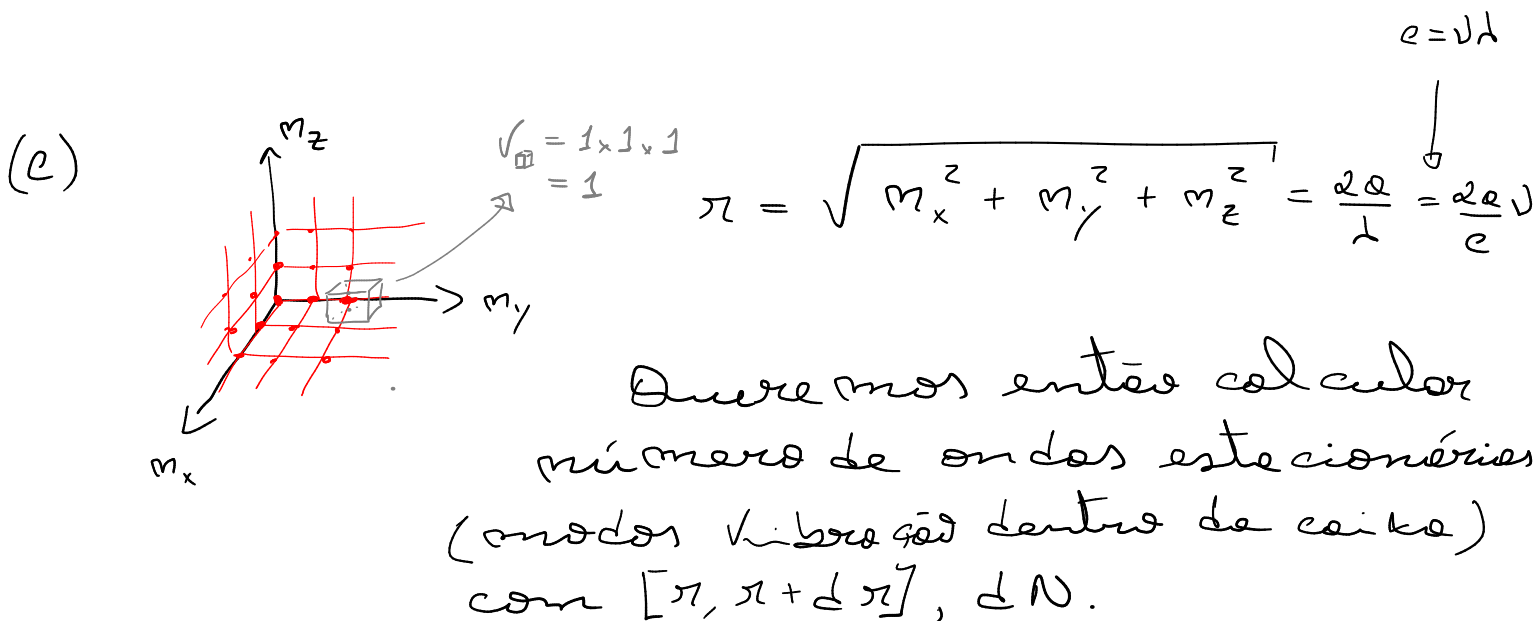 c = νλ
(c)
n_z
V = 1 x 1 x 1
= 1
r = √(n_x² + n_y² + n_z²) = 2a/λ = 2a/c ν
n_y
n_x
Queremos então calcular
número de ondas estacionárias
(modos vibração dentro da caixa)
com [r, r + dr], dN.